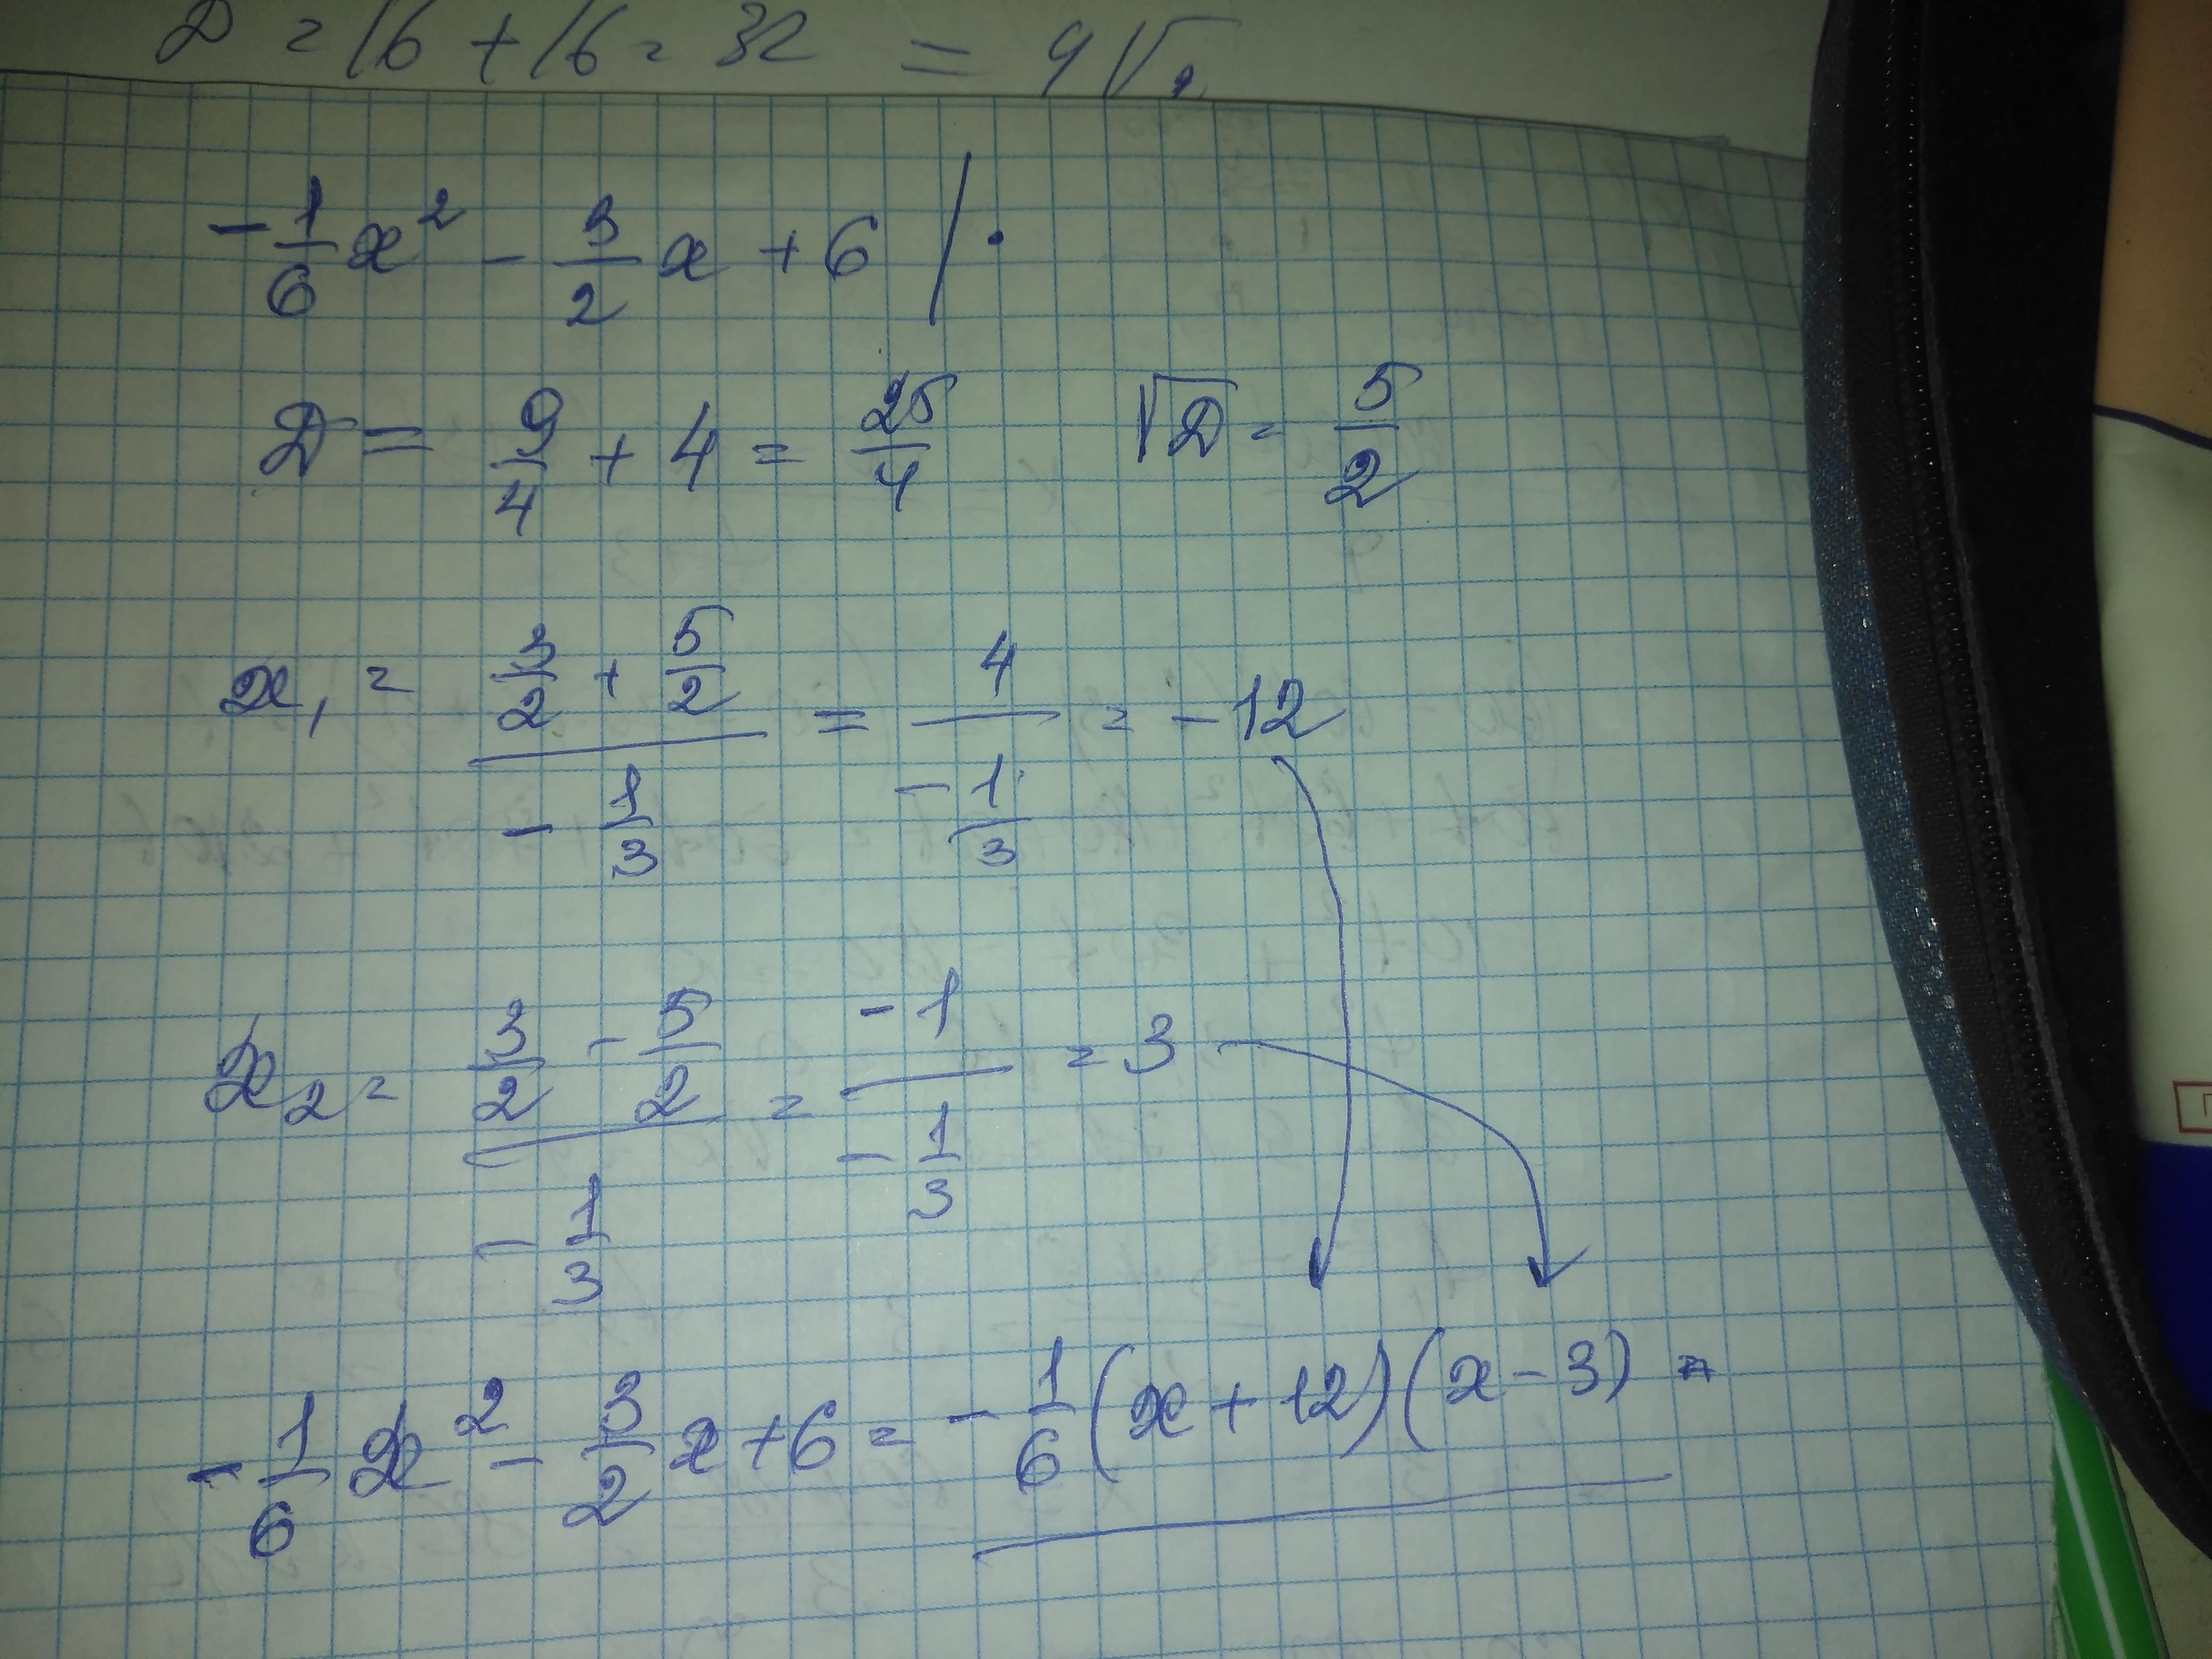 D = 16 + 16 = 32 = 4√
-1/6 x² - 3/2 x + 6 | ·
D = 9/4 + 4 = 25/4 √D = 5/2
x₁ = (3/2 + 5/2)/(-1/3) = 4/(-1/3) = -12
x₂ = (3/2 - 5/2)/(-1/3) = -1/(-1/3) = 3
-1/6 x² - 3/2 x + 6 = -1/6 (x + 12)(x - 3) =